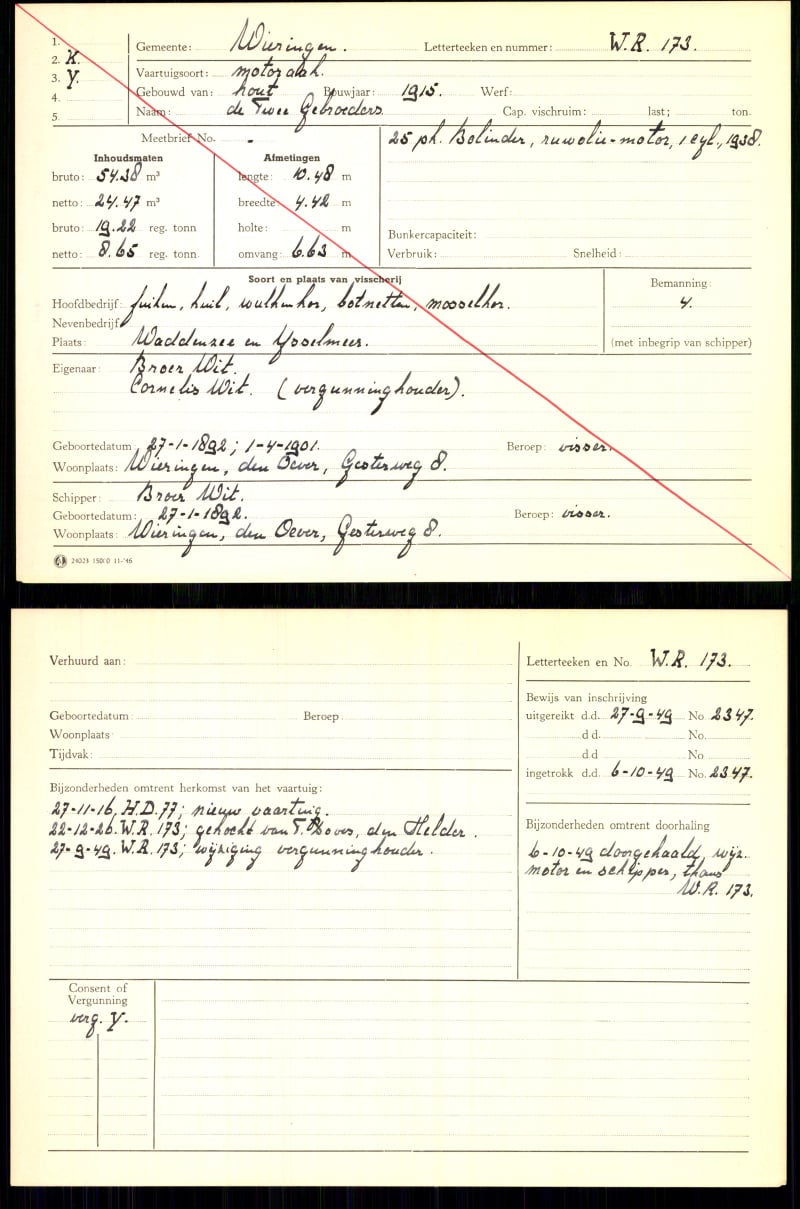 1.
2. K.
3. Y.
4.
5.
Gemeente: Wieringen. Letterteeken en nummer: W.R. 173.
Vaartuigsoort: motoraak.
Gebouwd van: hout Bouwjaar: 1915. Werf:
Naam: de Twee Gebroeders Cap. vischruim: last; ton.
Meetbrief No. -
Inhoudsmaten
bruto: 54.38 m³
netto: 24.47 m³
bruto: 19.22 reg. tonn
netto: 8.65 reg. tonn.
Afmetingen
lengte: 10.48 m
breedte: 4.42 m
holte: m
omvang: 6.63 m
25 pk. Bolinder, ruwolie-motor, 1 cyl., 1938.
Bunkercapaciteit:
Verbruik: Snelheid:
Soort en plaats van visscherij
Hoofdbedrijf: fuiken, kuil, wulkenkor, botnetten, mosselkor.
Nevenbedrijf
Plaats: Waddenzee en IJsselmeer.
Bemanning:
4.
(met inbegrip van schipper)
Eigenaar: Broer Wit.
Cornelis Wit. (vergunninghouder).
Geboortedatum: 27-1-1892; 1-4-1901. Beroep: visser.
Woonplaats: Wieringen, den Oever, Gesterweg 8.
Schipper: Broer Wit.
Geboortedatum: 27-1-1892. Beroep: visser.
Woonplaats: Wieringen, den Oever, Gesterweg 8.
24023 15000 11-'46
Verhuurd aan:
Geboortedatum: Beroep
Woonplaats:
Tijdvak:
Letterteeken en No. W.R. 173.
Bewijs van inschrijving
uitgereikt d.d. 27-9-49 No. 2347.
d d. No.
d d No
ingetrokk d.d. 6-10-49 No. 2347.
Bijzonderheden omtrent herkomst van het vaartuig:
27-11-16, H.D. 77; nieuw vaartuig.
22-12-26. W.R. 173; gekocht van den Helder.
27-9-49. W.R. 173; wijziging vergunninghouder.
Bijzonderheden omtrent doorhaling
6-10-49 doorgehaald, wijz.
motor en schipper, thans
W.R. 173.
Consent of
Vergunning
verg. Y.